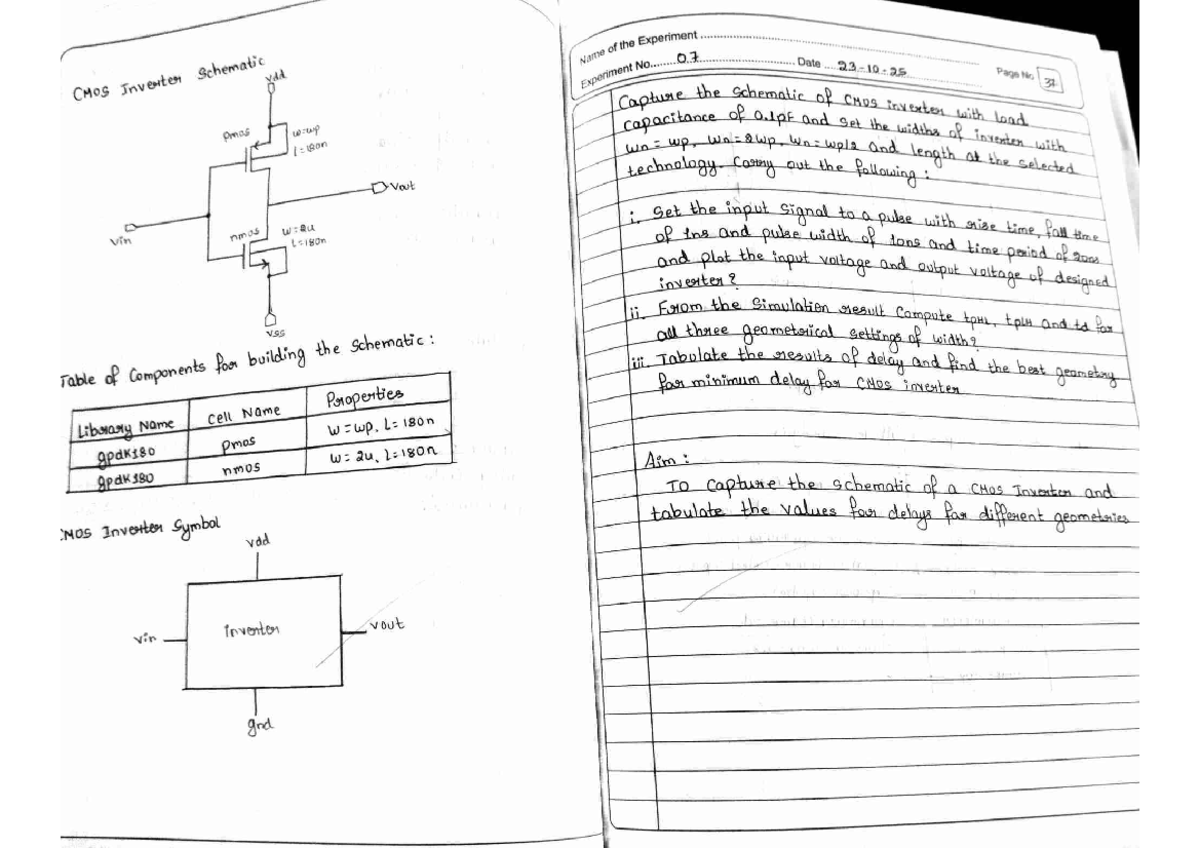 CMOS Inverter Schematic
vdd
pmos
w=wp
l=180n
Vout
Vin
nmos
w=2u
l=180n
vss
Table of Components for building the schematic:
Library Name Cell Name Properties
gpdk180 pmos w=wp, l=180n
gpdk180 nmos w=2u, l=180n
CMOS Inverter Symbol
vdd
vin
inverter
vout
gnd
Name of the Experiment
Experiment No. 07 Date 23-10-25 Page No 37
Capture the schematic of CMOS inverter with load
capacitance of 0.1pF and set the widths of inverter with
wn = wp, wn = 2wp, wn = wp/2 and length at the selected
technology. Carry out the following:
i. Set the input signal to a pulse with rise time, fall time
of 1ns and pulse width of 10ns and time period of 20ns
and plot the input voltage and output voltage of designed
inverter?
ii. From the simulation result Compute tpHL, tpLH and td for
all three geometrical settings of width?
iii. Tabulate the results of delay and find the best geometry
for minimum delay for CMOS inverter
Aim:
To capture the schematic of a CMOS Inverter and
tabulate the values for delays for different geometries